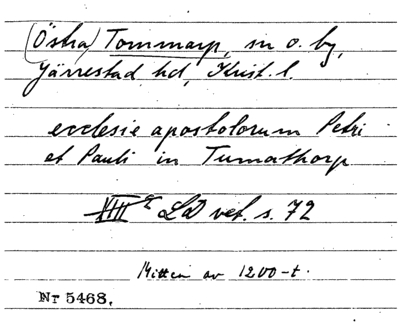 (Östra) Tommarp, sn o. by,
Järrestad hd, Krist. l.
ecclesie apostolorum Petri
et Pauli in Tumathorp
LD vet. s. 72
Mitten av 1200-t.
Nr 5468.